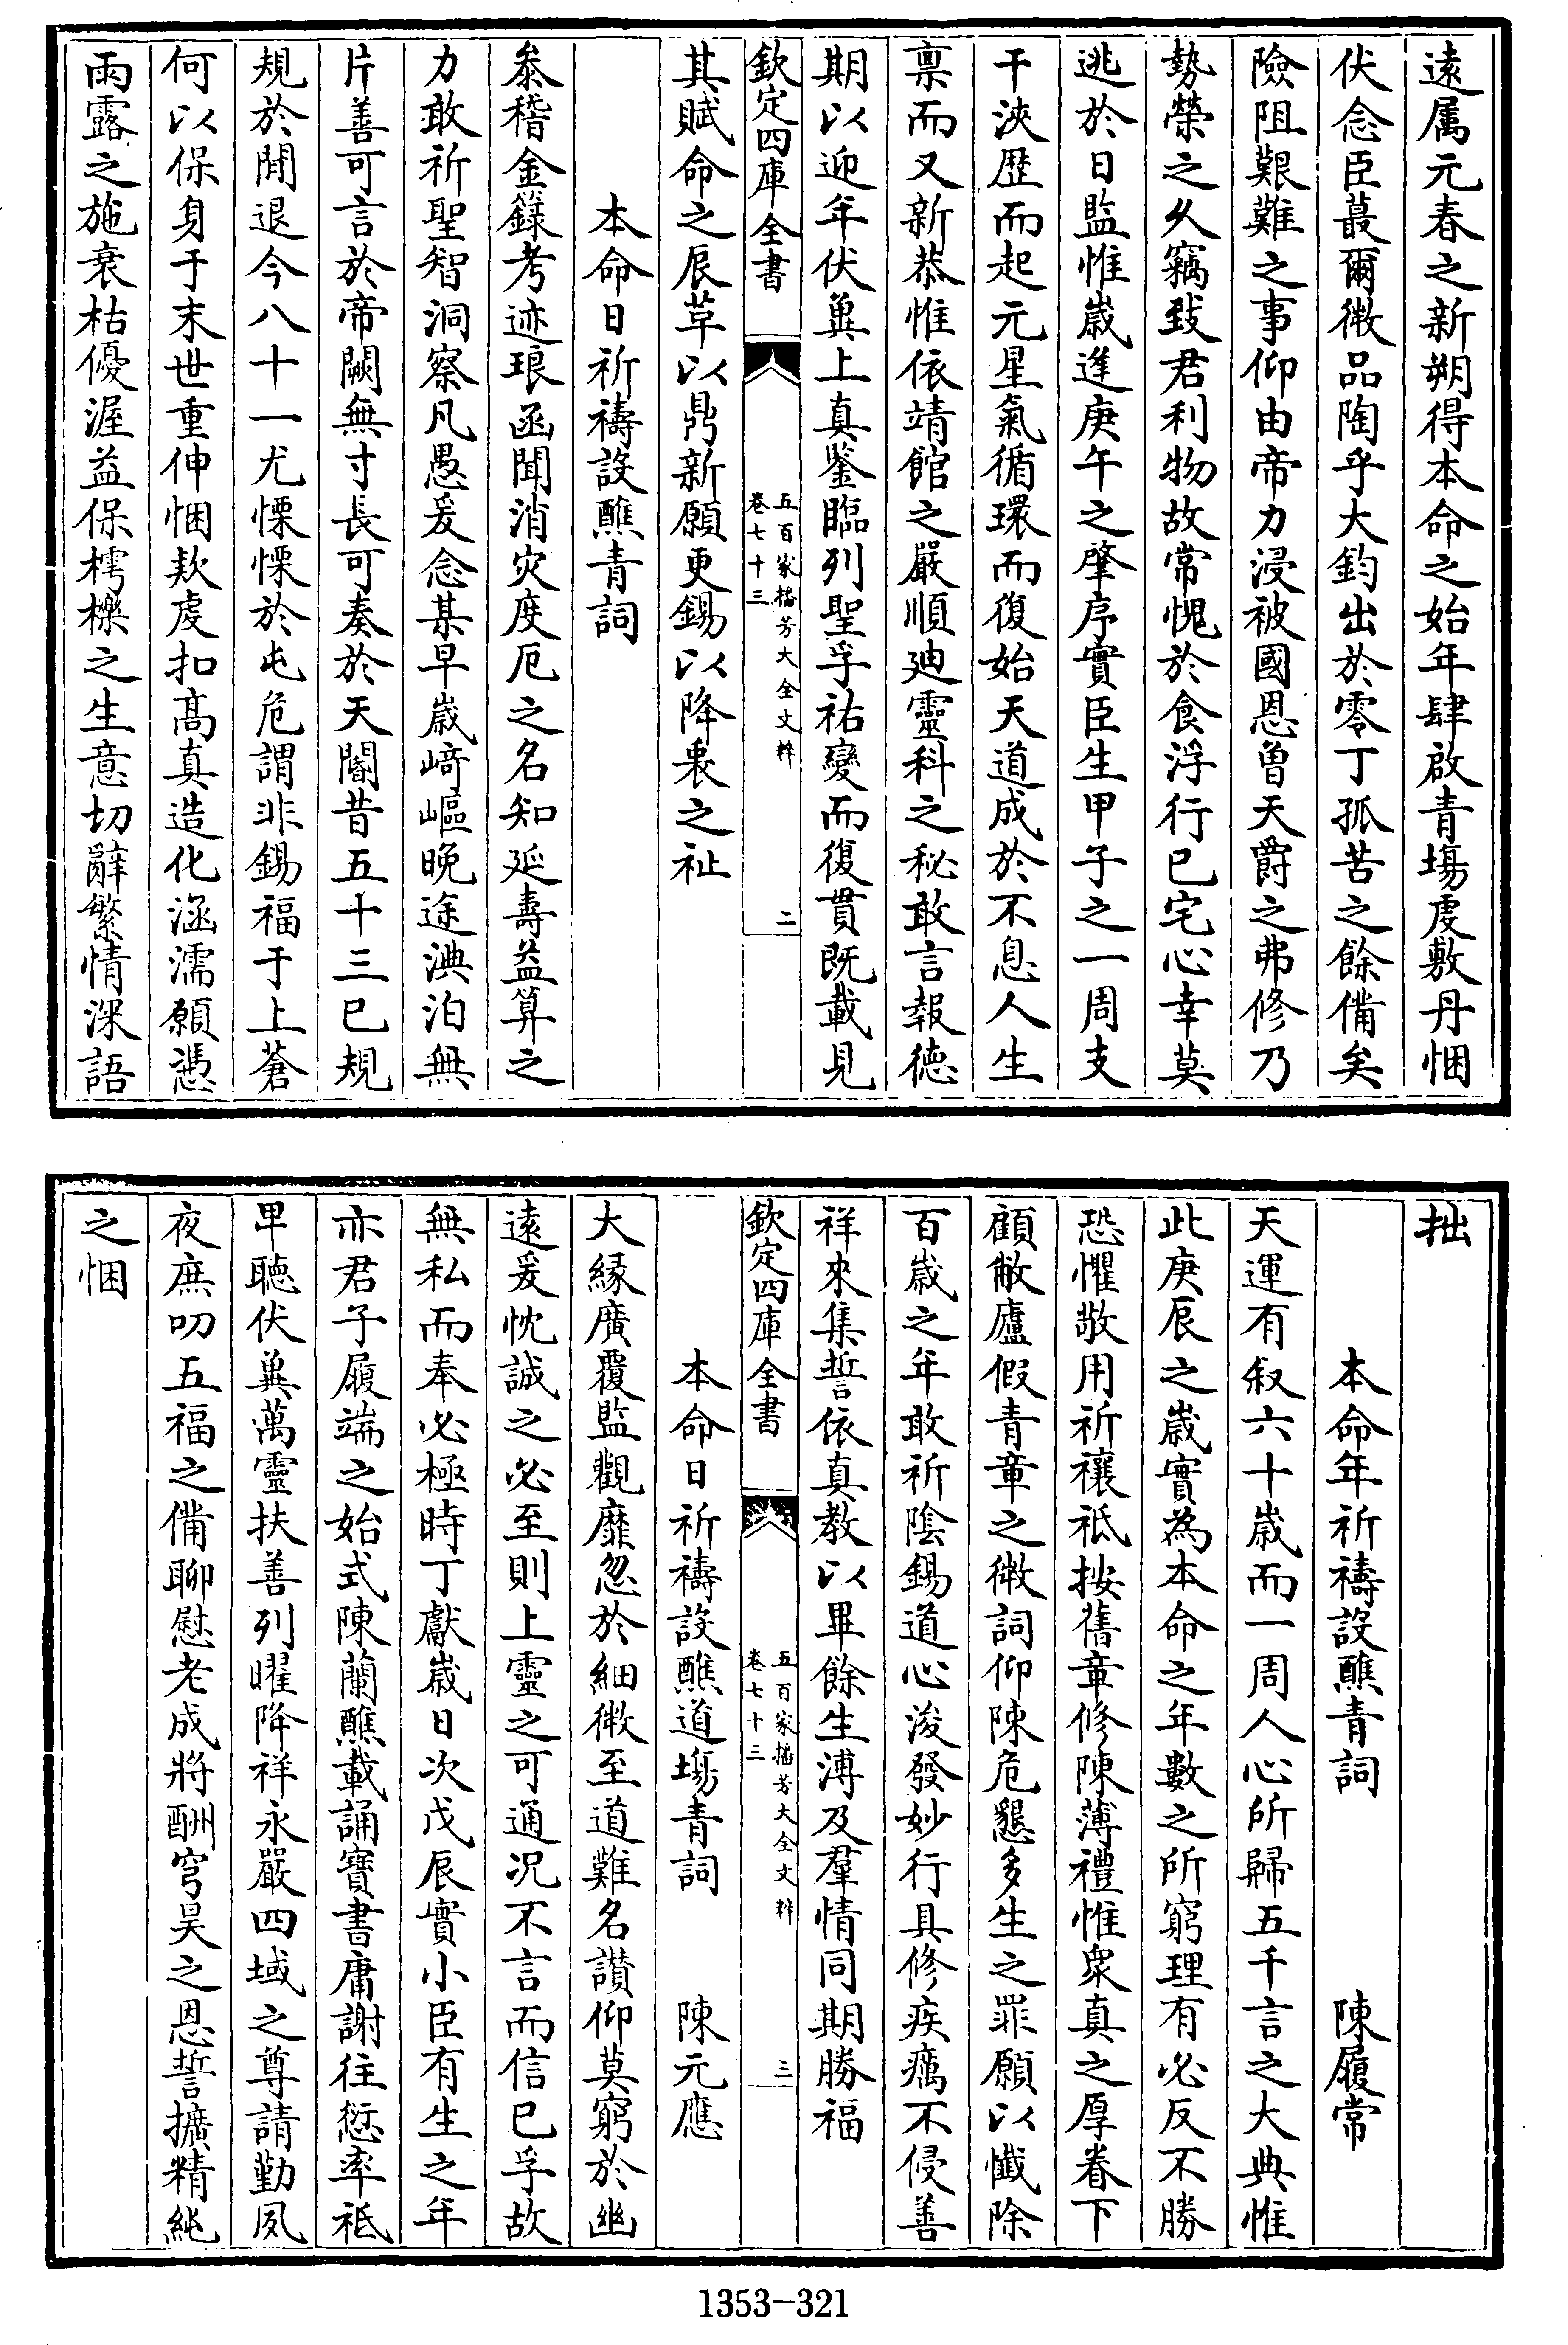 遠属元春之新朔得本命之始年肆啟青塲虔敷丹悃
伏念臣蕞爾微品陶乎大鈞出於零丁孤苦之餘備矣
險阻艱難之事仰由帝力浸被國恩曽天爵之弗修乃
勢榮之久竊致君利物故常愧於食浮行已宅心幸莫
逃於日監惟歳逢庚午之肇序實臣生甲子之一周支
干浹歴而起元星氣循環而復始天道成於不息人生
禀而又新恭惟依靖館之嚴順廸靈科之秘敢言報徳
期以迎年伏兾上真鑒臨列聖孚祐變而復貫既載見
欽定四庫全書
五百家播芳大全文粹
卷七十三
二
其賦命之辰草以鼎新願更錫以降衷之祉
本命日祈禱設醮青詞
叅稽金籙考迹琅函聞消灾度厄之名知延壽益算之
力敢祈聖智洞察凡愚爰念某早歳﨑嶇晚途淟泊無
片善可言於帝闕無寸長可奏於天閽昔五十三已規
規於閒退今八十一尤慄慄於屯危謂非錫福于上蒼
何以保身于末世重伸悃欵虔扣髙真造化涵濡願憑
雨露之施衰枯優渥益保樗櫟之生意切辭繁情深語
拙
本命年祈禱設醮青詞
陳履常
天運有叙六十歳而一周人心所歸五千言之大典惟
此庚辰之歳實為本命之年數之所窮理有必反不勝
恐懼敬用祈禳祗按舊章修陳薄禮惟衆真之厚眷下
顧敝廬假青章之微詞仰陳危懇多生之罪願以懺除
百歳之年敢祈隂錫道心浚發妙行具修疾癘不侵善
祥來集誓依真教以畢餘生溥及羣情同期勝福
欽定四庫全書
五百家播芳大全文粹
卷七十三
三
本命日祈禱設醮道塲青詞
陳元應
大縁廣覆監觀靡忽於細微至道難名讃仰莫窮於幽
遠爰忱誠之必至則上靈之可通况不言而信已孚故
無私而奉必極時丁獻歳日次戊辰實小臣有生之年
亦君子履端之始式陳蘭醮載誦寶書庸謝往愆率祗
甲聽伏兾萬靈扶善列曜降祥永嚴四域之尊請勤夙
夜庶叨五福之備聊慰老成將酬穹昊之恩誓擴精純
之悃
1353-321